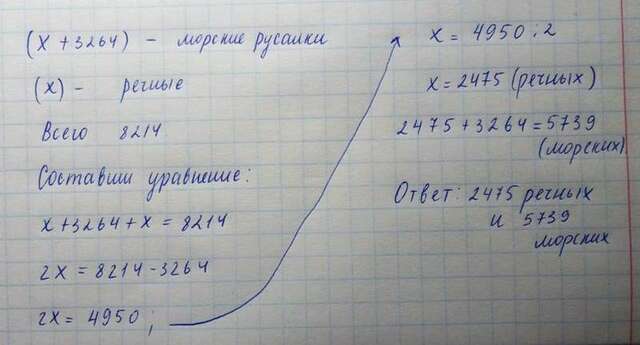 (x + 3264) - морские русалки
(x) - речные
Всего 8214
Составим уравнение:
x + 3264 + x = 8214
2x = 8214 - 3264
2x = 4950;
x = 4950 : 2
x = 2475 (речных)
2475 + 3264 = 5739
(морских)
Ответ: 2475 речных
и 5739
морских